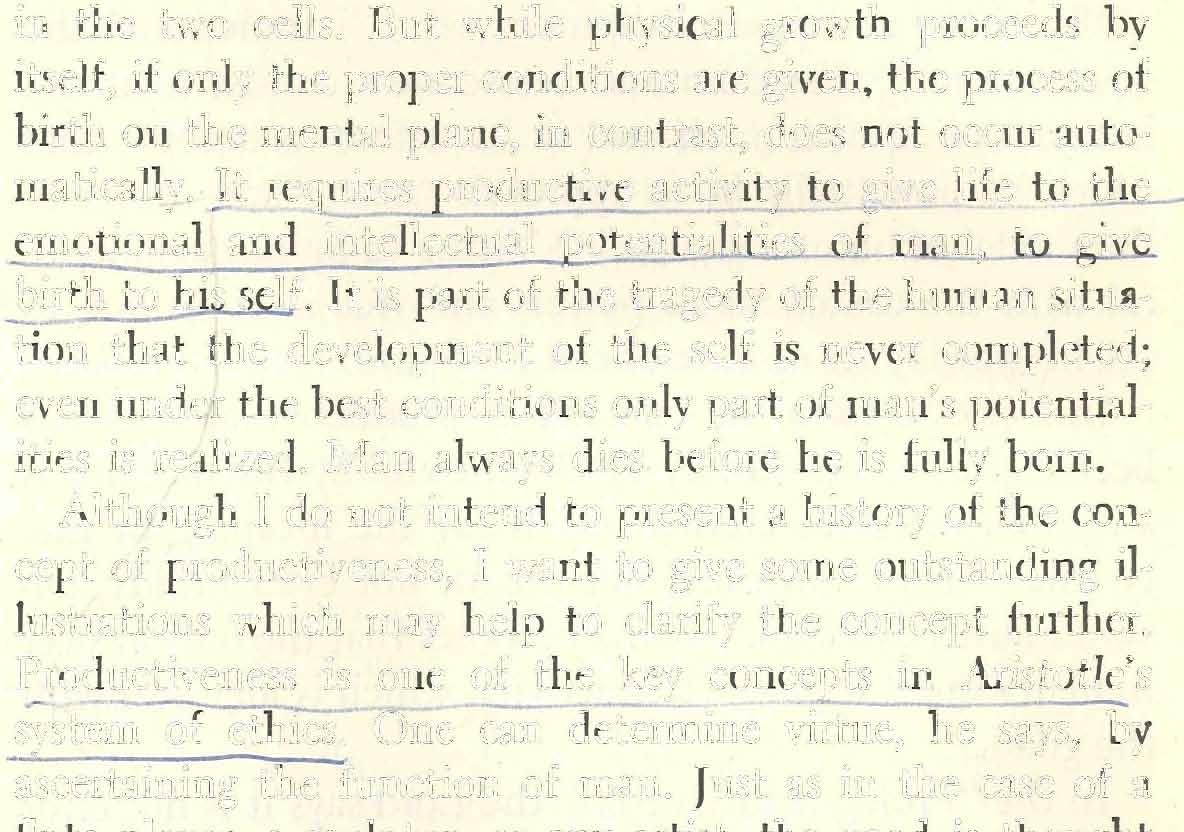 in the two cells. But while physical growth proceeds by
itself, if only the proper conditions are given, the process of
birth on the mental plane, in contrast, does not occur auto-
matically. It requires productive activity to give life to the
emotional and intellectual potentialities of man, to give
birth to his self. It is part of the tragedy of the human situa-
tion that the development of the self is never completed;
even under the best conditions only part of man's potential-
ities is realized. Man always dies before he is fully born.
Although I do not intend to present a history of the con-
cept of productiveness, I want to give some outstanding il-
lustrations which may help to clarify the concept further.
Productiveness is one of the key concepts in Aristotle's
system of ethics. One can determine virtue, he says, by
ascertaining the function of man. Just as in the case of a